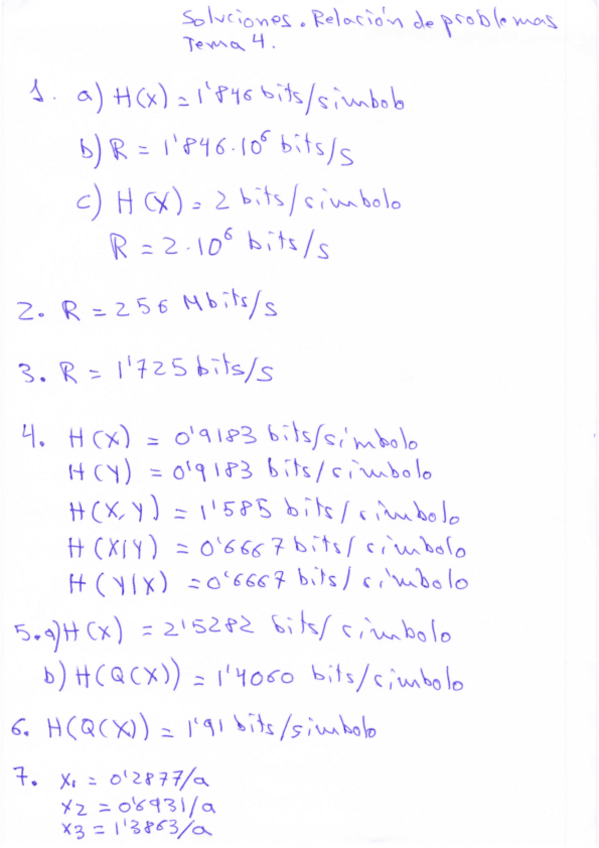 Soluciones. Relación de problemas
Tema 4.
1. a) H(X) = 1'846 bits/símbolo
b) R = 1'846·10⁶ bits/s
c) H(X) = 2 bits/símbolo
R = 2·10⁶ bits/s
2. R = 256 Mbits/s
3. R = 1'725 bits/s
4. H(X) = 0'9183 bits/símbolo
H(Y) = 0'9183 bits/símbolo
H(X,Y) = 1'585 bits/símbolo
H(X|Y) = 0'6667 bits/símbolo
H(Y|X) = 0'6667 bits/símbolo
5. a) H(X) = 2'5282 bits/símbolo
b) H(Q(X)) = 1'4060 bits/símbolo
6. H(Q(X)) = 1'91 bits/símbolo
7. x₁ = 0'2877/a
x₂ = 0'6931/a
x₃ = 1'3863/a